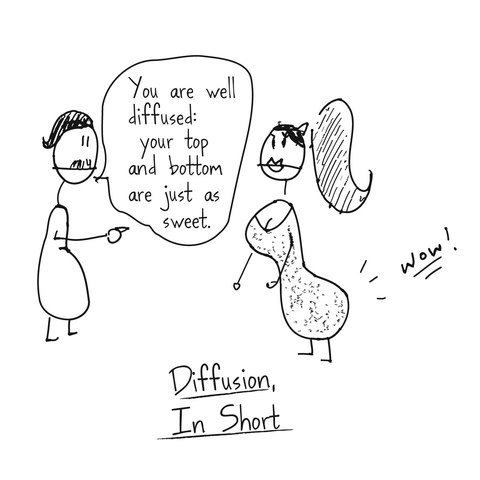 You are well
diffused:
your top
and bottom
are just as
sweet.
wow!
Diffusion,
In Short